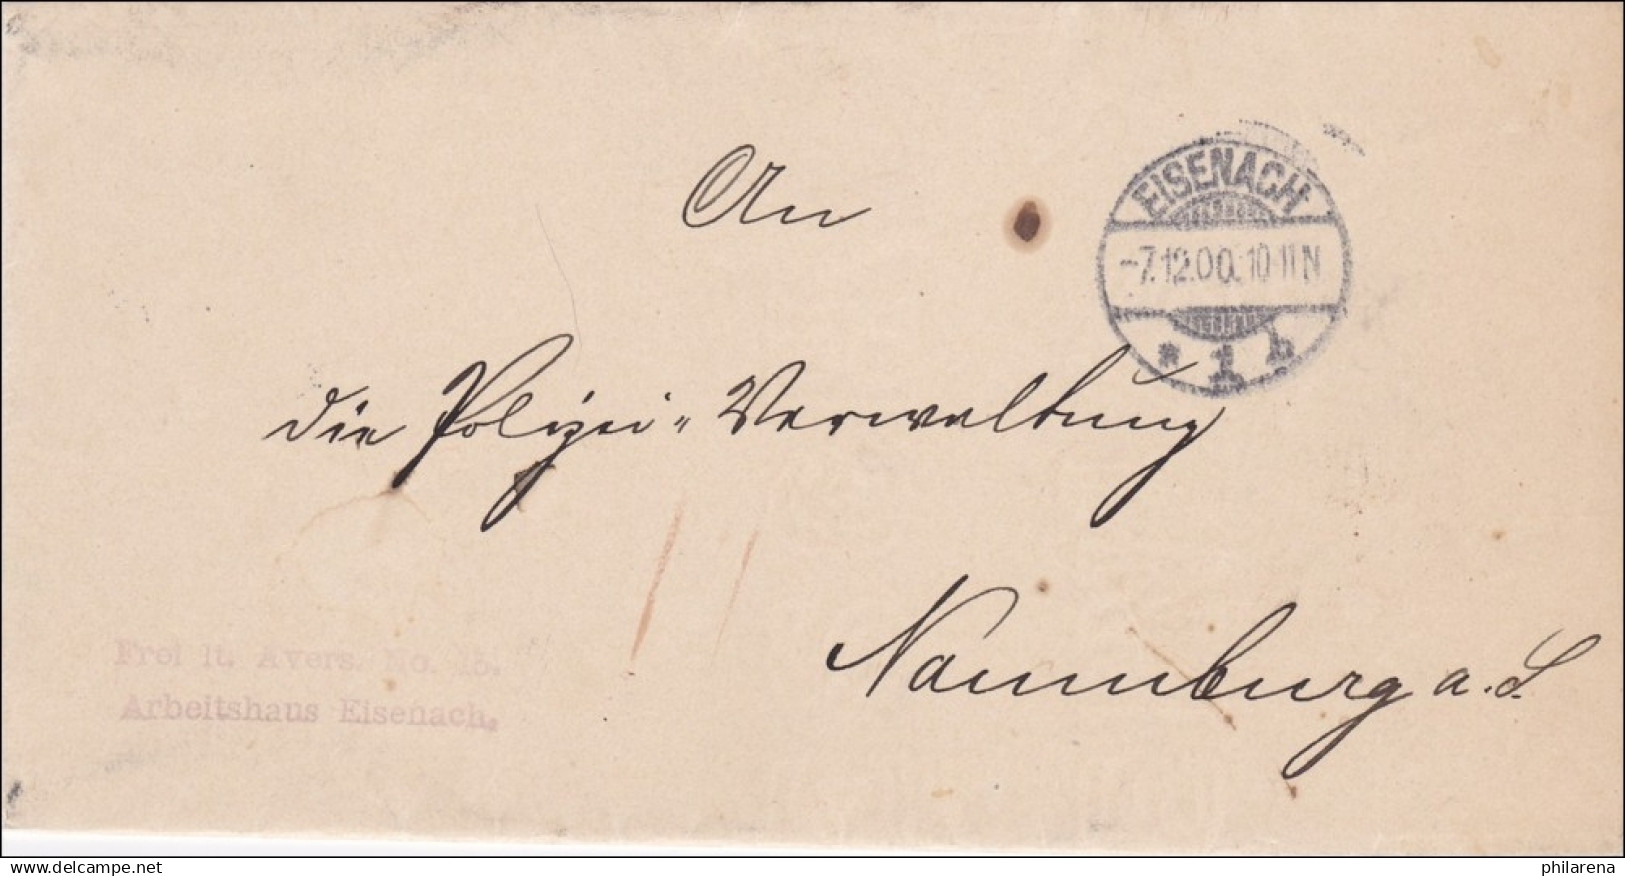 EISENACH
-7.12.00. 10-11N
* 1 h
An
die Polizei-Verwaltung
Naumburg a. S.
Frei lt. Avers. No. 15.
Arbeitshaus Eisenach.
www.delcampe.net
philarena